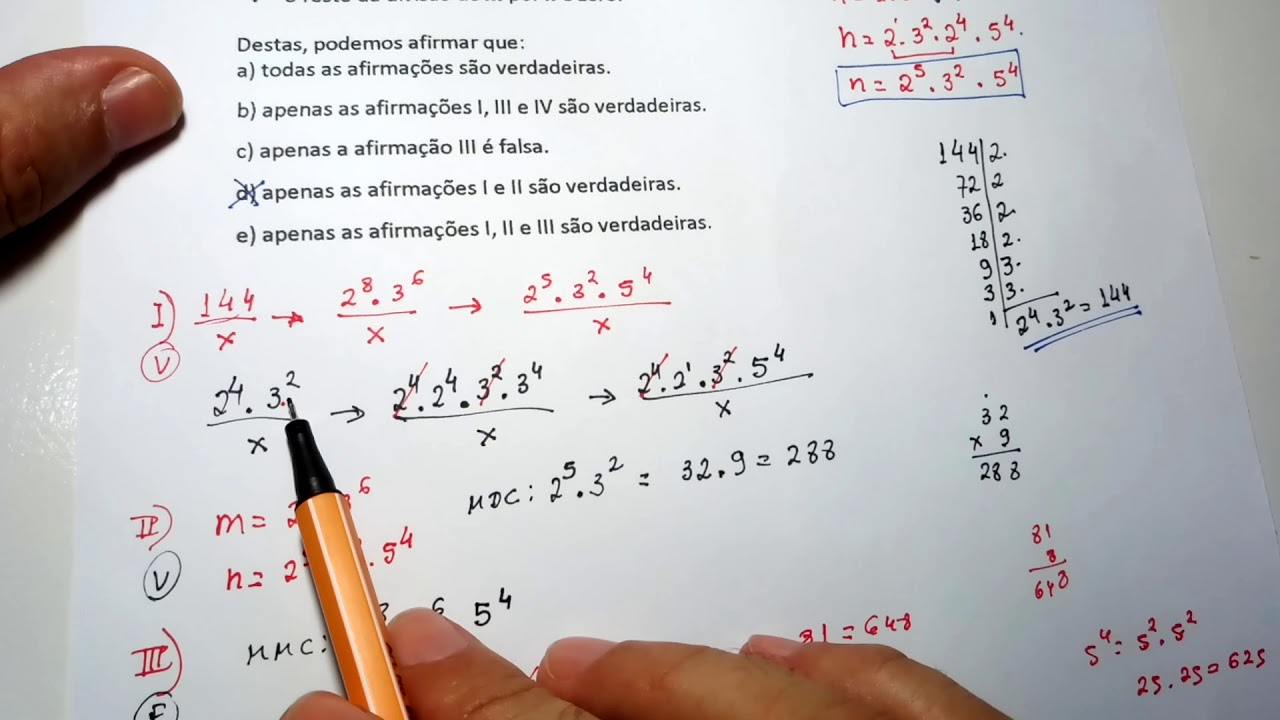 Destas, podemos afirmar que:
a) todas as afirmações são verdadeiras.
b) apenas as afirmações I, III e IV são verdadeiras.
c) apenas a afirmação III é falsa.
d) apenas as afirmações I e II são verdadeiras.
e) apenas as afirmações I, II e III são verdadeiras.
n = 2¹ . 3² . 2⁴ . 5⁴.
n = 2⁵ . 3² . 5⁴
144 | 2.
72 | 2
36 | 2
18 | 2.
9 | 3.
3 | 3.
1 | 2⁴ . 3² = 144
I) 144/x → 2⁸ . 3⁶/x → 2⁵ . 3² . 5⁴/x
V
2⁴ . 3²/x → 2⁴ . 2⁴ . 3² . 3⁴/x → 2⁴ . 2¹ . 3² . 5⁴/x
MDC: 2⁵ . 3² = 32 . 9 = 288
32
x 9
288
II) m = 2 3⁶
V
n = 2⁵ . 5⁴
81
8
648
III) MMC: 6 5⁴
F
81 = 648
5⁴ = 5² . 5²
25 . 25 = 625